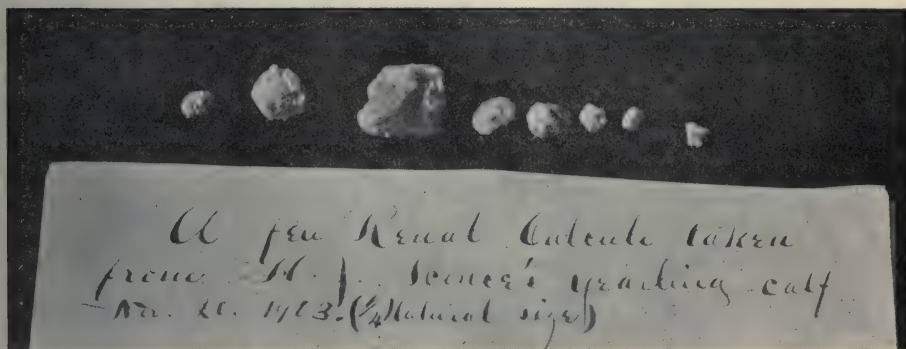 A few Renal Calculi taken
from H. J. yearling calf
1903. (¼ Natural size)